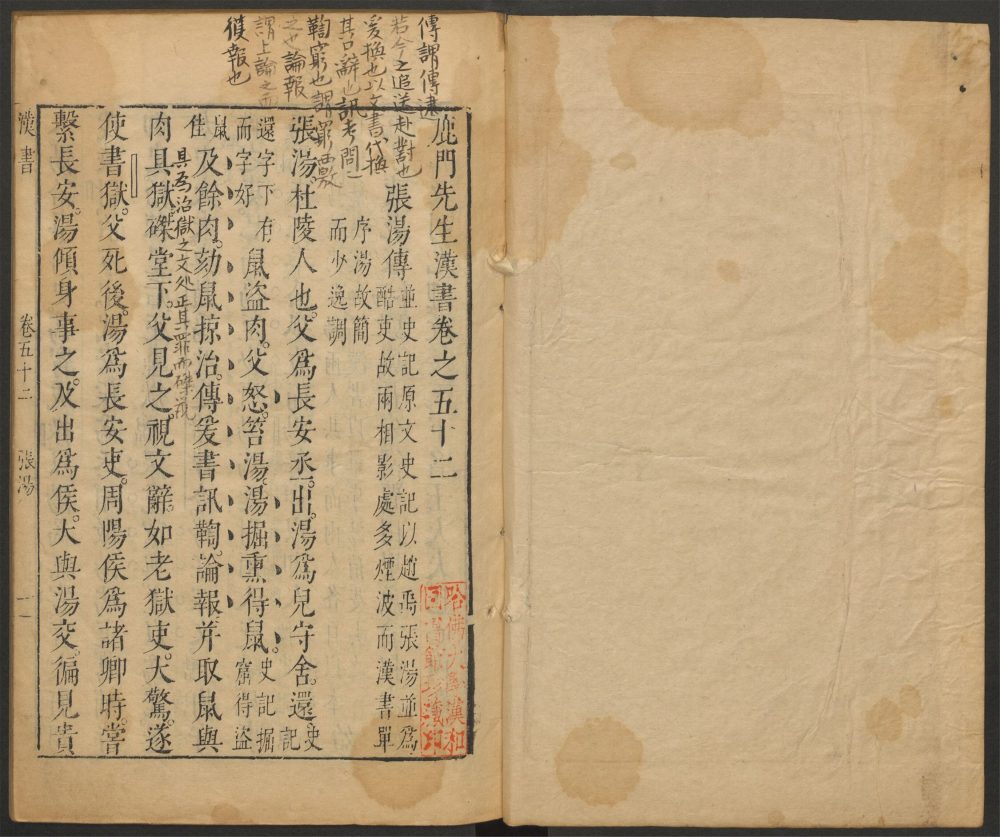 傳謂傳逮
若今之追送赴對也
爰換也以文書代換
其口辭也訊考問
鞫窮也謂罪
之也論報
謂上論之而
獲報也
鹿門先生漢書卷之五十二
張湯傳
並史記原文史記以趙禹張湯並爲
酷吏故兩相影處多煙波而漢書單
序湯故簡
而少逸調
張湯杜陵人也父爲長安丞出湯爲兒守舍還史記
還字下有
而字好
鼠盜肉父怒笞湯湯掘熏得鼠史記掘窟得盜
鼠
及餘肉劾鼠掠治傳爰書訊鞫論報并取鼠與
肉具獄磔堂下父見之視文辭如老獄吏大驚遂
具爲治獄之文處正其罪而磔鼠
使書獄父死後湯爲長安吏周陽侯爲諸卿時嘗
繫長安湯傾身事之及出爲侯大與湯交徧見貴
漢書
卷五十二
張湯
一
哈佛大學漢和
圖書館珍藏印